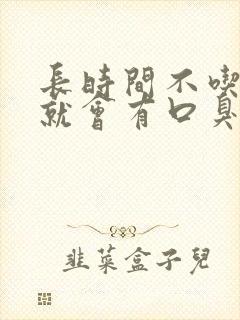 長時間不喫
就會有口臭
韭菜盒子兒